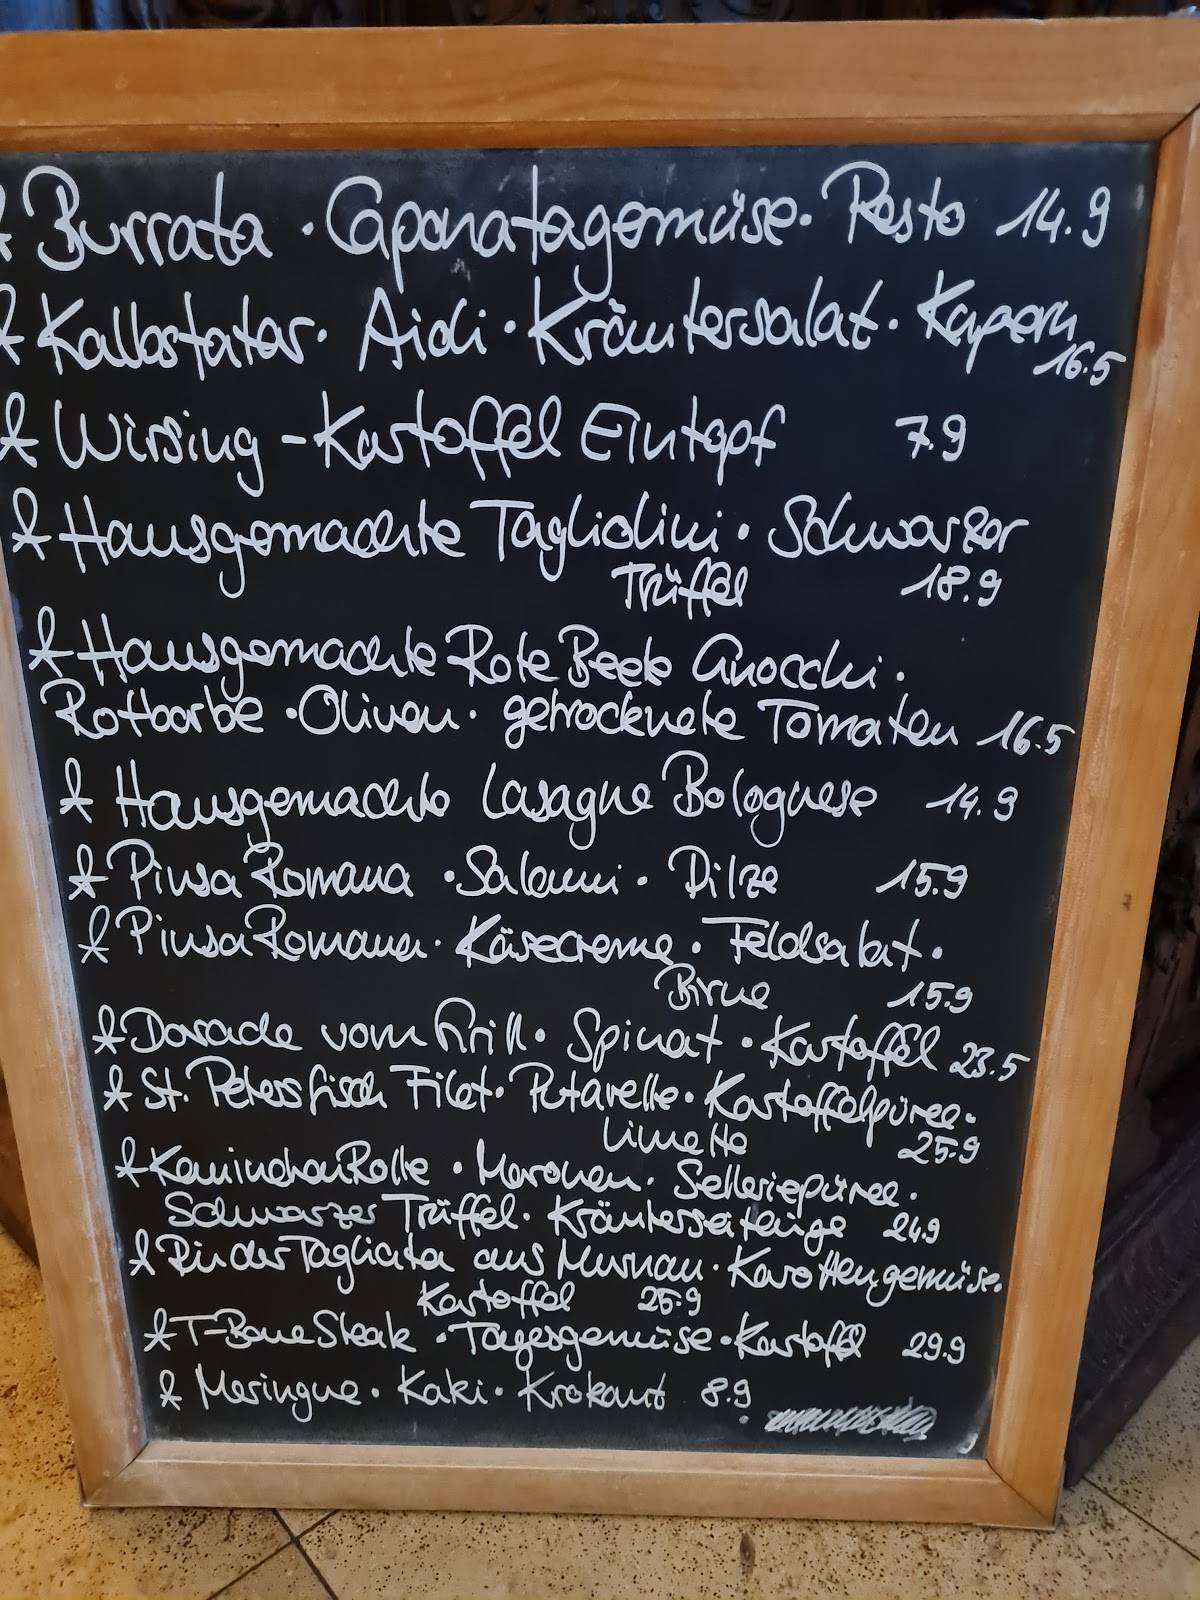 * Burrata · Caponatagemüse · Pesto 14.9
* Kalbstatar · Aioli · Kräutersalat · Kapern
16.5
* Wirsing-Kartoffel Eintopf 7.9
* Hausgemachte Tagliolini · Schwarzer
Trüffel 18.9
* Hausgemachte Rote Beete Gnocchi ·
Rotbarbe · Oliven · getrocknete Tomaten 16.5
* Hausgemachte Lasagne Bolognese 14.9
* Pinsa Romana · Salami · Pilze 15.9
* Pinsa Romana · Käsecreme · Feldsalat ·
Birne 15.9
* Dorade vom Grill · Spinat · Kartoffel 23.5
* St. Petersfisch Filet · Putarelle · Kartoffelpüree ·
Limette 25.9
* Kaninchen Rolle · Maronen · Selleriepüree ·
Schwarzer Trüffel · Kräuterseitlinge 24.9
* Rinder Tagliata aus Murnau · Karottengemüse ·
Kartoffel 25.9
* T-Bone Steak · Tagesgemüse · Kartoffel 29.9
* Meringue · Kaki · Krokant 8.9